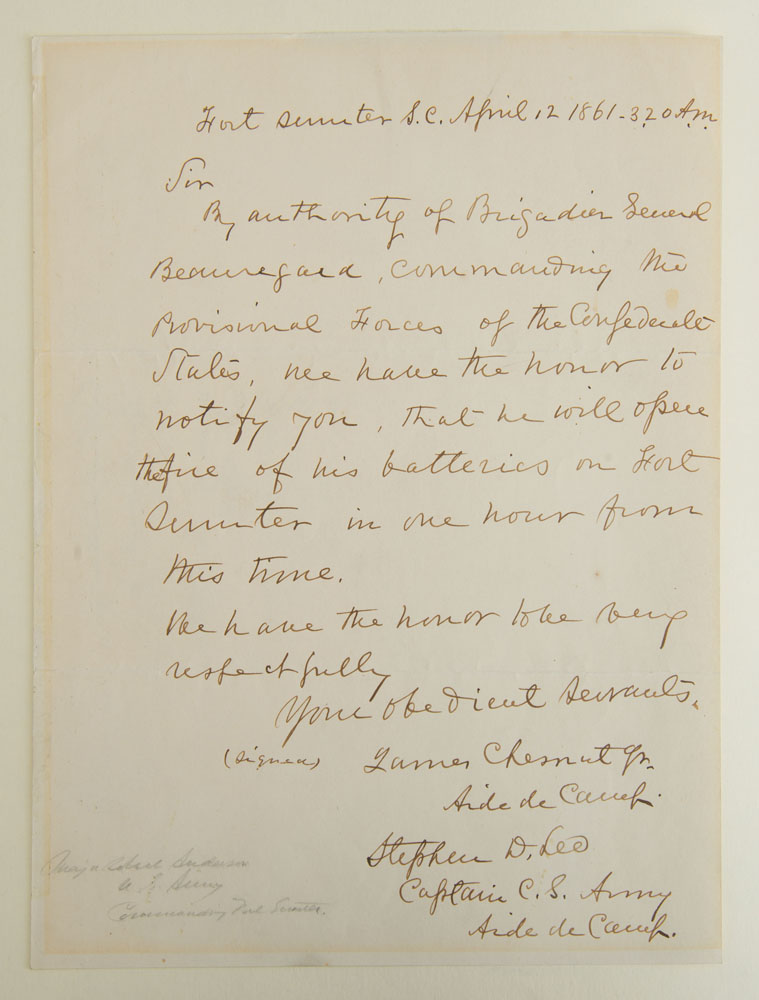 Fort Sumter S.C. April 12 1861 - 3.20 A.M.
Sir
By authority of Brigadier General
Beauregard, commanding the
Provisional Forces of the Confederate
States, we have the honor to
notify you, that he will open
the fire of his batteries on Fort
Sumter in one hour from
this time.
We have the honor to be very
respectfully
Your obedient servants.
(signed) James Chesnut Jr.
Aide de Camp.
Stephen D. Lee
Captain C. S. Army
Aide de Camp.
Major Robert Anderson
U. S. Army
Commanding Fort Sumter.